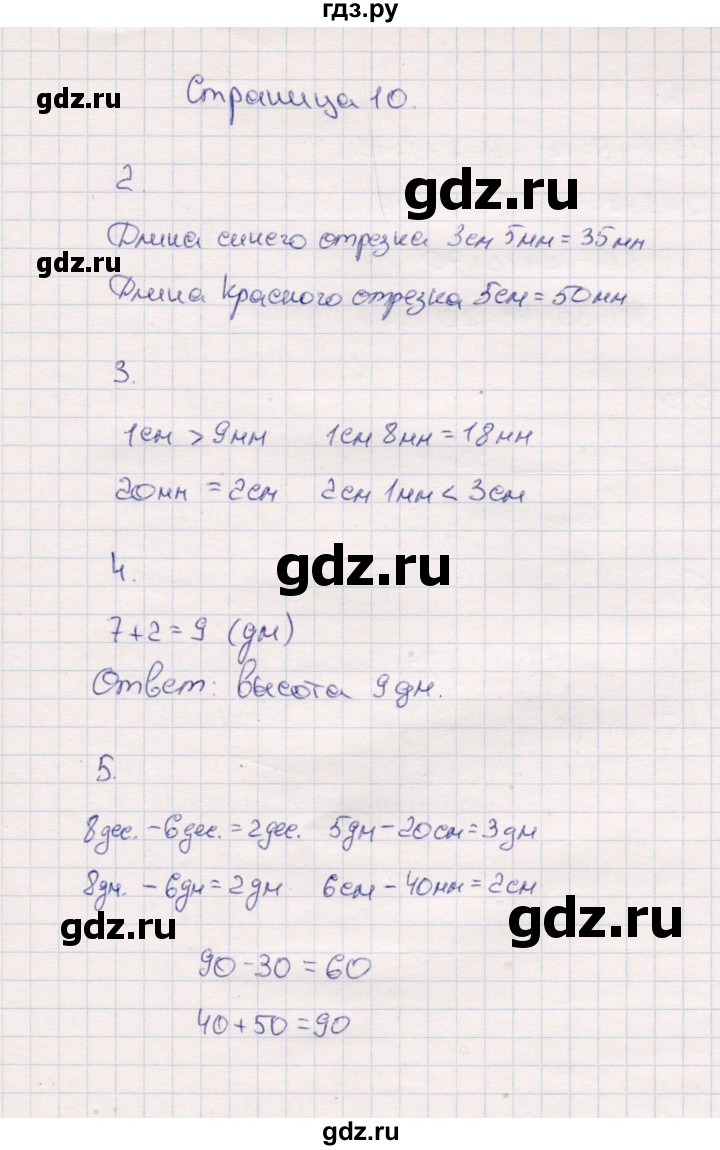 гдз.ру
Страница 10.
gdz.ru
2.
gdz.ru
Длина синего отрезка 3см 5мм = 35мм
gdz.ru
Длина красного отрезка 5см = 50мм
3.
1см > 9мм 1см 8мм = 18мм
20мм = 2см 2см 1мм < 3см
gdz.ru
4.
7+2=9 (дм)
Ответ: высота 9дм.
5.
8дес. - 6дес. = 2дес. 5дм - 20см = 3дм
8дм. - 6дм = 2дм 6см - 40мм = 2см
gdz.ru
gdz.ru
90 - 30 = 60
40 + 50 = 90
gdz.ru